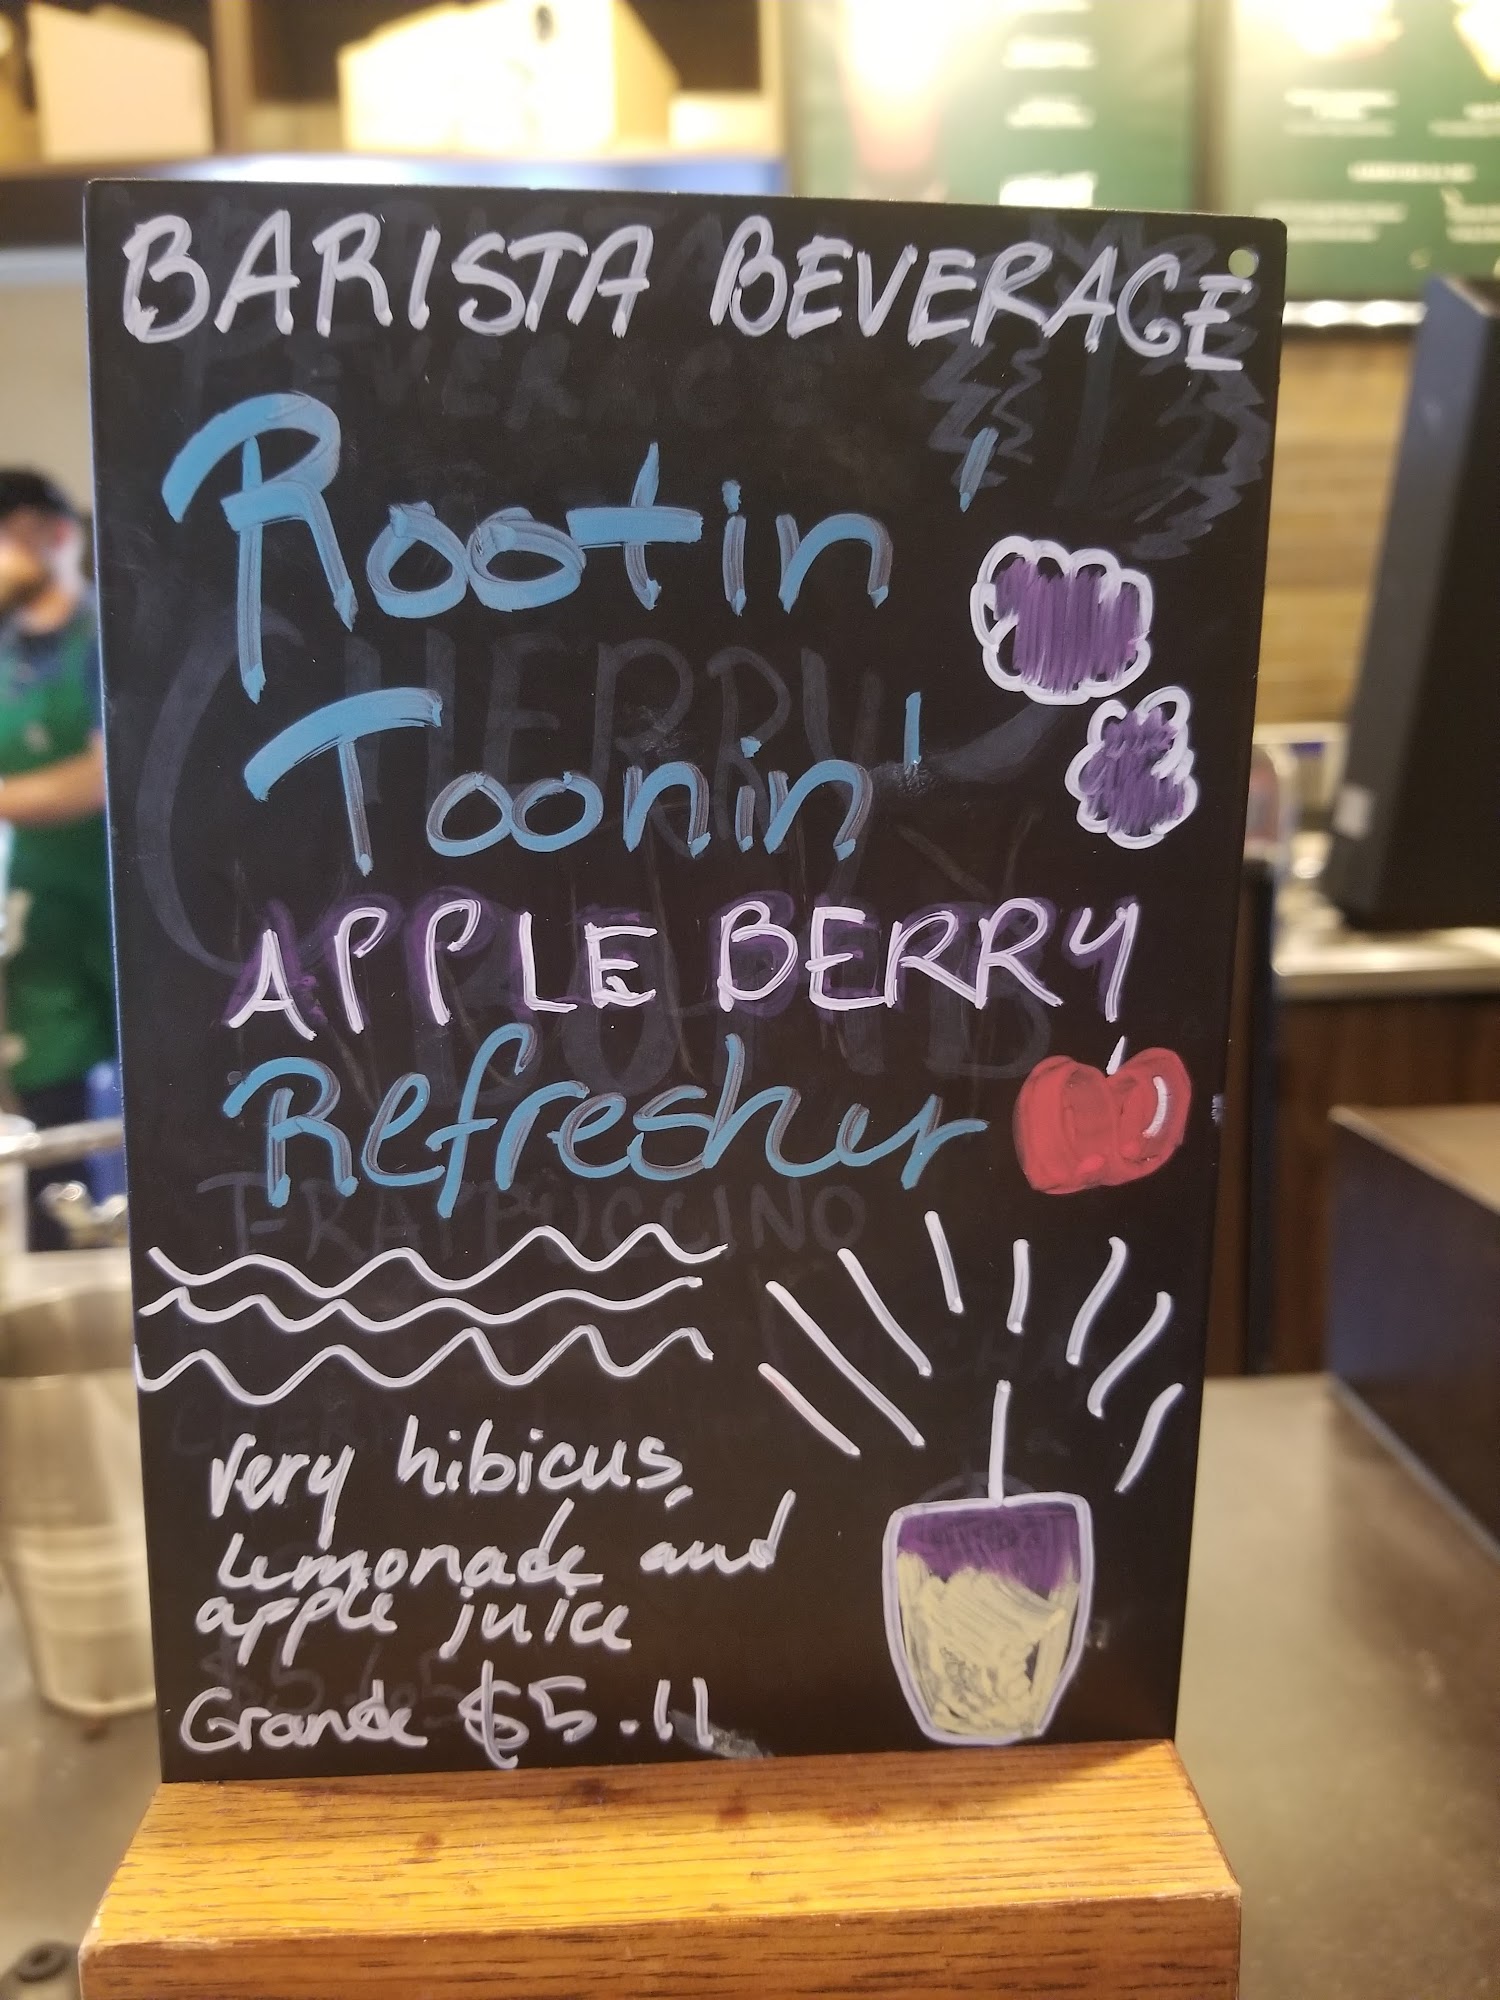 BARISTA BEVERAGE
Rootin'
Toonin'
APPLE BERRY
Refresher
Very hibicus,
Lemonade and
apple juice
Grande $5.11
CHERRY
FRAPPUCCINO